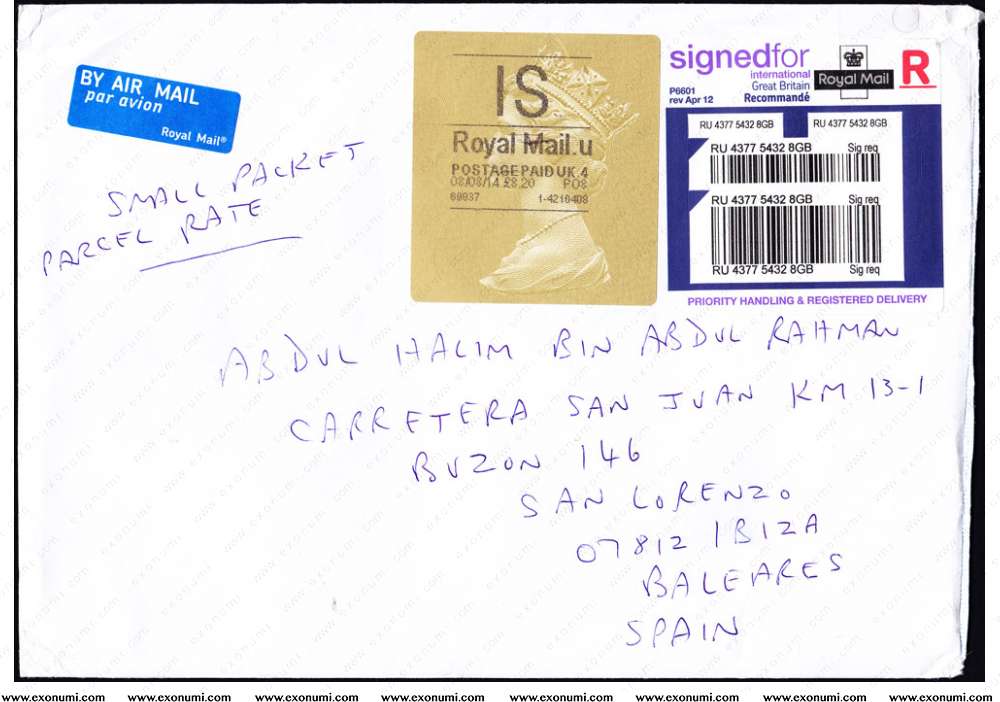 BY AIR MAIL
par avion
Royal Mail®
SMALL PACKET
PARCEL RATE
IS
Royal Mail.u
POSTAGE PAID UK 4
08/08/14 £8.20 POS
69937 1-4216408
signedfor
international
Great Britain
Recommandé
P6601
rev Apr 12
Royal Mail
R
RU 4377 5432 8GB RU 4377 5432 8GB
RU 4377 5432 8GB Sig req
RU 4377 5432 8GB Sig req
RU 4377 5432 8GB Sig req
PRIORITY HANDLING & REGISTERED DELIVERY
ABDUL HALIM BIN ABDUL RAHMAN
CARRETERA SAN JUAN KM 13-1
BUZON 146
SAN LORENZO
07812 IBIZA
BALEARES
SPAIN
www.exonumi.com www.exonumi.com www.exonumi.com www.exonumi.com www.exonumi.com www.exonumi.com www.exonumi.com www.exonumi.com